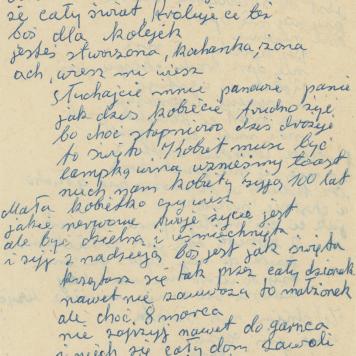 że cały świat Króluje ci też
boś dla kolejek
jesteś stworzona, kochanka, żona
ach, wiesz mi wiesz
słuchajcie mnie panowie panie
jak dziś kobiecie trudno żyć
bo choć stopniowo dziś drożeje
to święto Kobiet musi być
lampką wina wznieśmy toast
niech nam kobiety żyją 100 lat
Mała kobietko czy wiesz
jakie nerwowe twoje życie jest
ale bądź dzielna i uśmiechnięta
i żyj z nadzieją boś jest jak święta
krzątasz się tak przez cały dzionek
nawet nie zauważa to małżonek
ale choć 8 marca
nie zajrzyj nawet do garnca
niech się cały dom